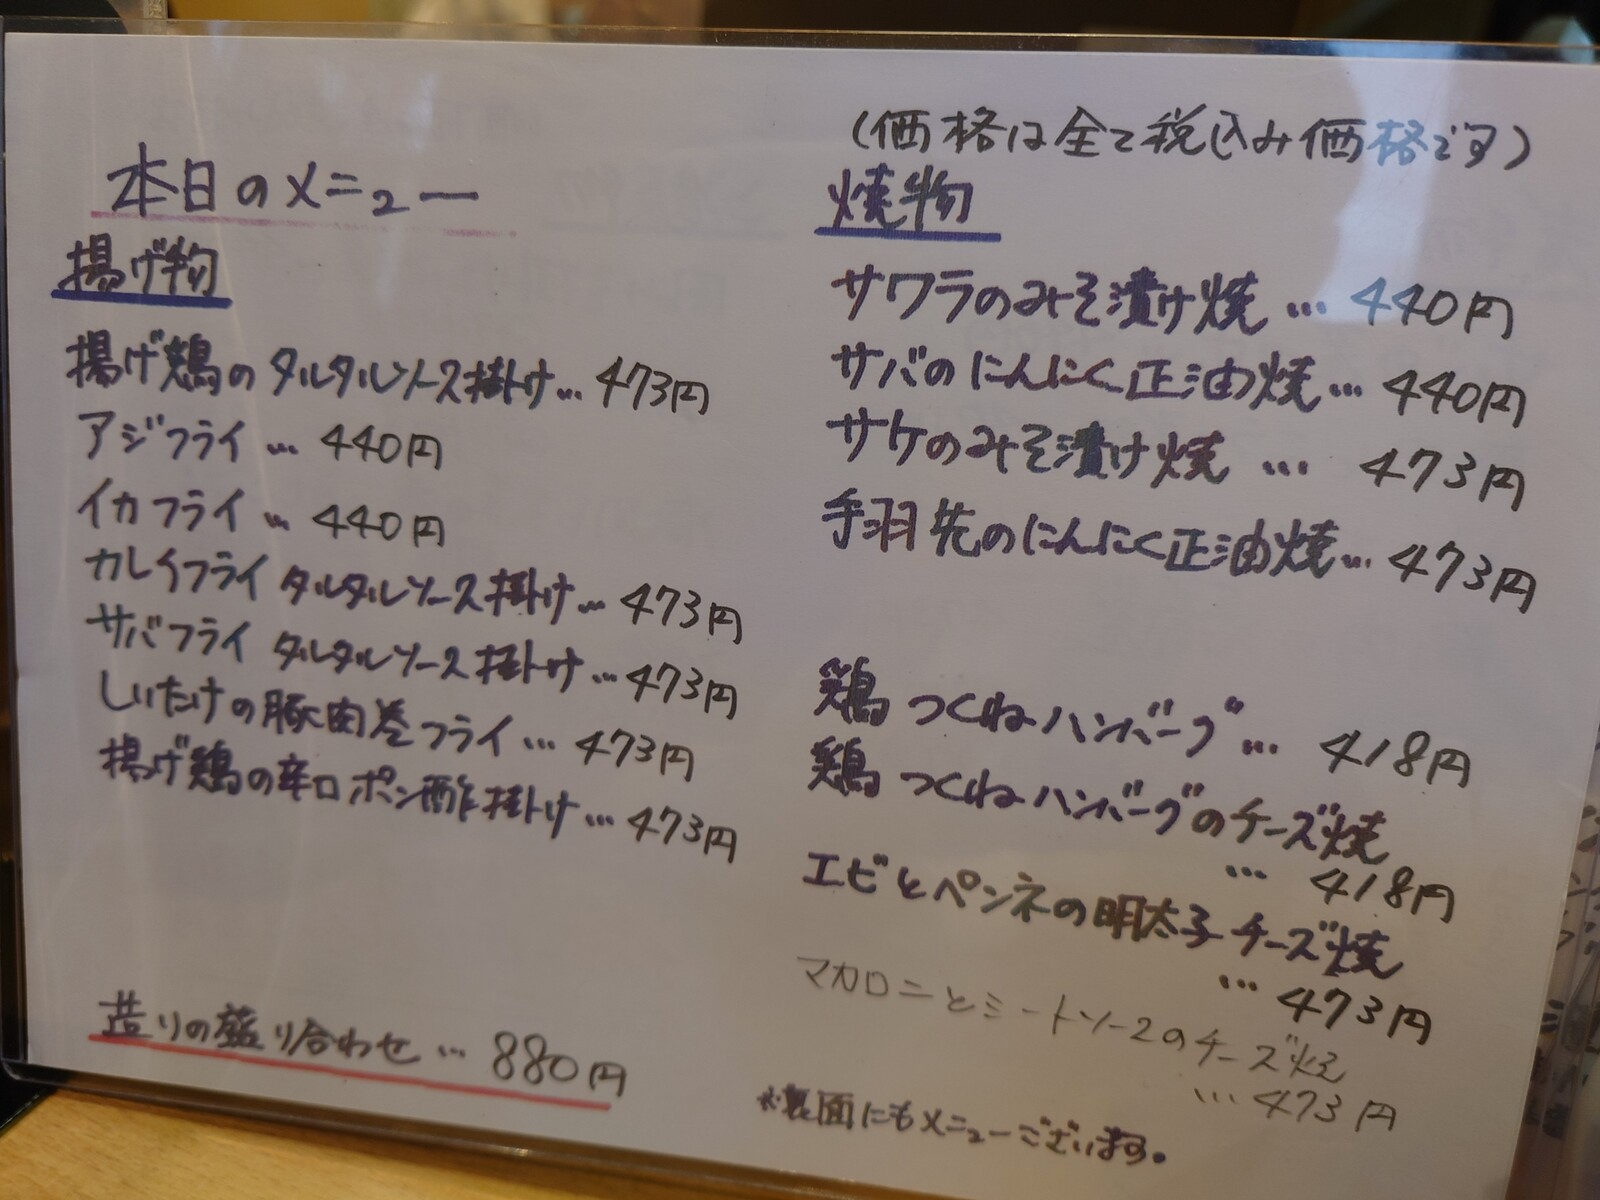 本日のメニュー
揚げ物
揚げ鶏のタルタルソース掛け…473円
アジフライ…440円
イカフライ…440円
カレイフライタルタルソース掛け…473円
サバフライタルタルソース掛け…473円
しいたけの豚肉巻フライ…473円
揚げ鶏の辛口ポン酢掛け…473円
造りの盛り合わせ…880円
(価格は全て税込み価格です)
焼物
サワラのみそ漬け焼…440円
サバのにんにく正油焼…440円
サケのみそ漬け焼…473円
手羽先のにんにく正油焼…473円
鶏つくねハンバーグ…418円
鶏つくねハンバーグのチーズ焼
…418円
エビとペンネの明太子チーズ焼
…473円
マカロニとミートソースのチーズ焼
…473円
※裏面にもメニューございます。